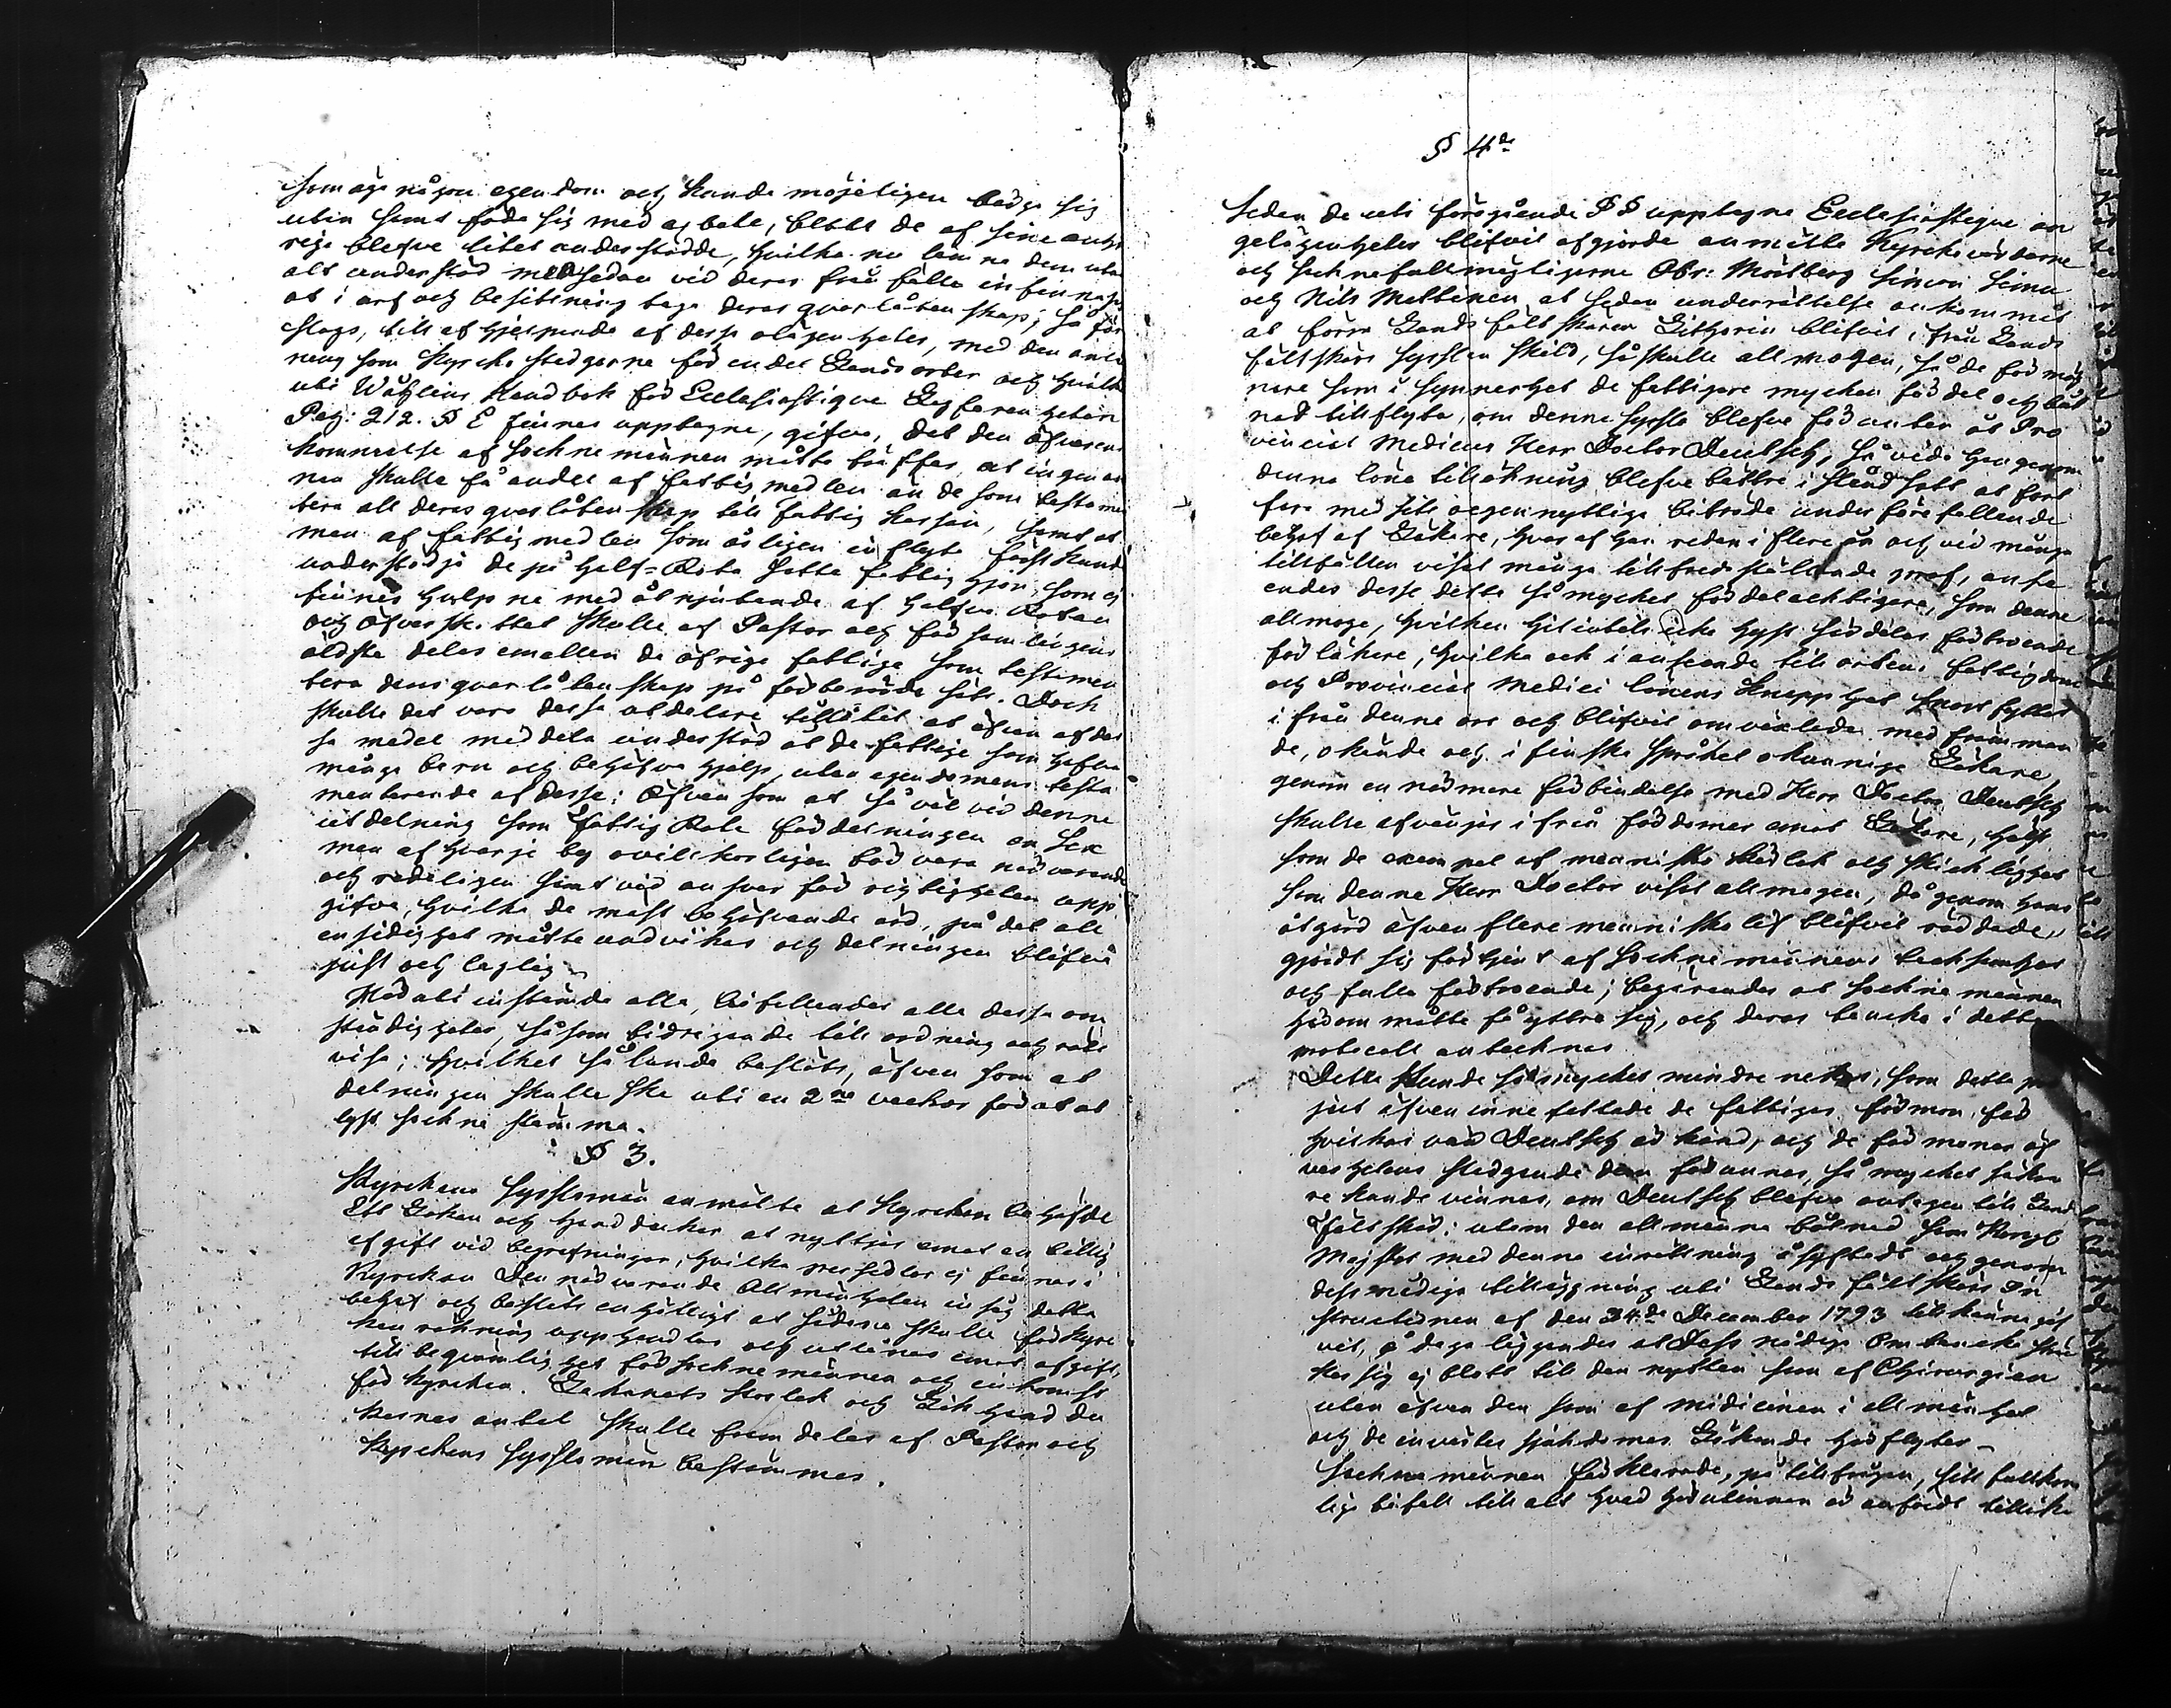 som äga någon egendom och kunde möjeligen bärga sig
utan samt föda sig med arbete, blott de af sine anhö
rige blefve litet understödde, hvilka nu lämna dem utan
alt understöd men sedan vid deras frånfälle infinna sig
at i arf och besittning taga deras qvarlåtenskap; så för
slogs, till afhjelpande af dessa olägenheter, med den anled
ning som Kyrcko stadgarne för andre Landsorter och hvilka
uti Wåhlins Handbok för Ecclesiastique Lagfarenheten
Pag: 212. § E finnes upptagne, gifva, det den öfverens
kommelse af Sockne männen måtte träffas, at ingen an
nan skulle få andel af fattig medlen än de som testamen
tera all deras qvarlåtenskap till fattig Kassan, samt at
man af fattigmedlen som årligen inflyta först kunde
understödja de på half-Rota satta fattig hjon, som ej
finnes hulpne med åtnjutande af halfva Rotan
och öfverskottet skulle af Pastor och församlingens
äldste delas emellan de öfrige fattige som testamen
tera dess qvarlåtenskap på förberörde sätt. Dock
skulle det vara dessa utdelare tillåtit at äfven af des
sa medel meddela understöd åt de fattige som hafva
många barn och behöfva hjelp, utan egendomens testa
menterande af desse; Äfven som at så väl vid denne
utdelning som fattig Rote fördelningen en Sex
man af hvarje by ovilkorligen bör vara närvarande
och redeligen samt vid ansvar för rigtigheten upp
gifva, hvilka de mäst behöfvande äro, på det all
ensidighet måtte undvikas och delningen blifva
just och laglig
Häruti instämde alla, bifallandes alla dessa om
ständigheter, såsom bidragande till ordning och rätt
visa; hvilket således beslöts, äfven som at
delningen skulle ske uti en 2ne veckor förut at
lyst sockne stämma.
§ 3.
Kyrckans Sysslomän anmälte at Kyrckan behöfde
Ett Lakan och handdukar at nyttjas emot en billig
afgift vid begrafningar, hvilka persedlar ej finnas i
Kyrckan. Den närvarande Allmänheten insåg detta
behof och beslöts enhälligt at sådana skulle för Kyrc
kans räkning upphandlas och utlånas emot afgift,
till beqvämlighet för sockne männen och inkomst
för Kyrckan. Lakanets storlek och Lik handdu
karnes antal skulle framdeles af Pastor och
Kyrckans Sysslomän bestämmas.
§ 4de
Sedan de uti föregående §§ upptagne Ecclesiastique an
gelägenheter blifvit afgjorde anmälte Kyrckovärdarne
och sockne fullmägtigarne Abr: Mörtberg Simon Simu
och Nils Mattinen, at sedan underrättelse ankommit
at förra Lands fält skären Lithorin blifvit ifrån Lands
fältskärs sysslan skild, så skulle allmogen, så de förmög
nare som i synnerhet de fattigare mycken fördel och båt
nad tillflyta, om denna syssla blefve förunten åt Pro
vincial Medicus Herr Doctor Deutsch, så vida han genom
denna löne tillökning blefve bättre i stånd satt at fort
fara med sitt oegennyttiga biträde under förefallende
behof af Läkare, hvaraf han redan i flere år och vid många
tillfällen visat många tillfredställande prof, anse
endes desse detta så mycket fördelachtigare, som denne
allmoge, hvilken hit intils icke hyst särdeles förtroende
för läkare, hvilka ock i anseende till ortens fattigdom
och Provincial Medici lönens knapphet snart flyttat
ifrån denna ort och blifvit omvexlade med främ man
de, okände och i finska språket okunnige Läkare,
genom en närmare förbindelse med Herr Doctor Deutsch
skulle afvänjas ifrån fördomar emot Läkare, hälst
som de exempel af mennisko kärlek och skicklighet
som denne Herr Doctor visat allmogen, då genom hans
åtgärd äfven flere mennisko lif blifvit räddade,
gjordt sig förtjent af Sockne männens tacksamhet
och fulla förtroende; begärandes at Sockne männen
härom måtte få yttra sig, och deras tancka i detta
protocoll antecknas
Detta kunde så mycket mindre nekas, som detta pro
ject äfven innefattade de fattigas förmon för
hvilkas vård Deutsch är känd, och de förmoner öf
verhetens stadgande dem förunnar, så mycket säkra
re kunde vinnas, om Deutsch blefve antagen till Land
Fältskär: utom den allmänna båtnad som Kongl
Majstet med denna inrättning åsyftadt och genom
dess nådiga tilläggning uti Lands fältskärs In
structionen af den 34de December 1793 tillkännagif
vit, å daga läggandes at Dess nådiga Omtancka sträc
ker sig ej blott till den nyttan som af Chirurgien
utan äfven den som af medicinen i allmänhet
och de invärtes sjukdomar Läkande härflyter –
Sockne männen förklarade, på tillfrågan, sitt fullkom
liga bifall till alt hvad härutinnan är anfördt tillika